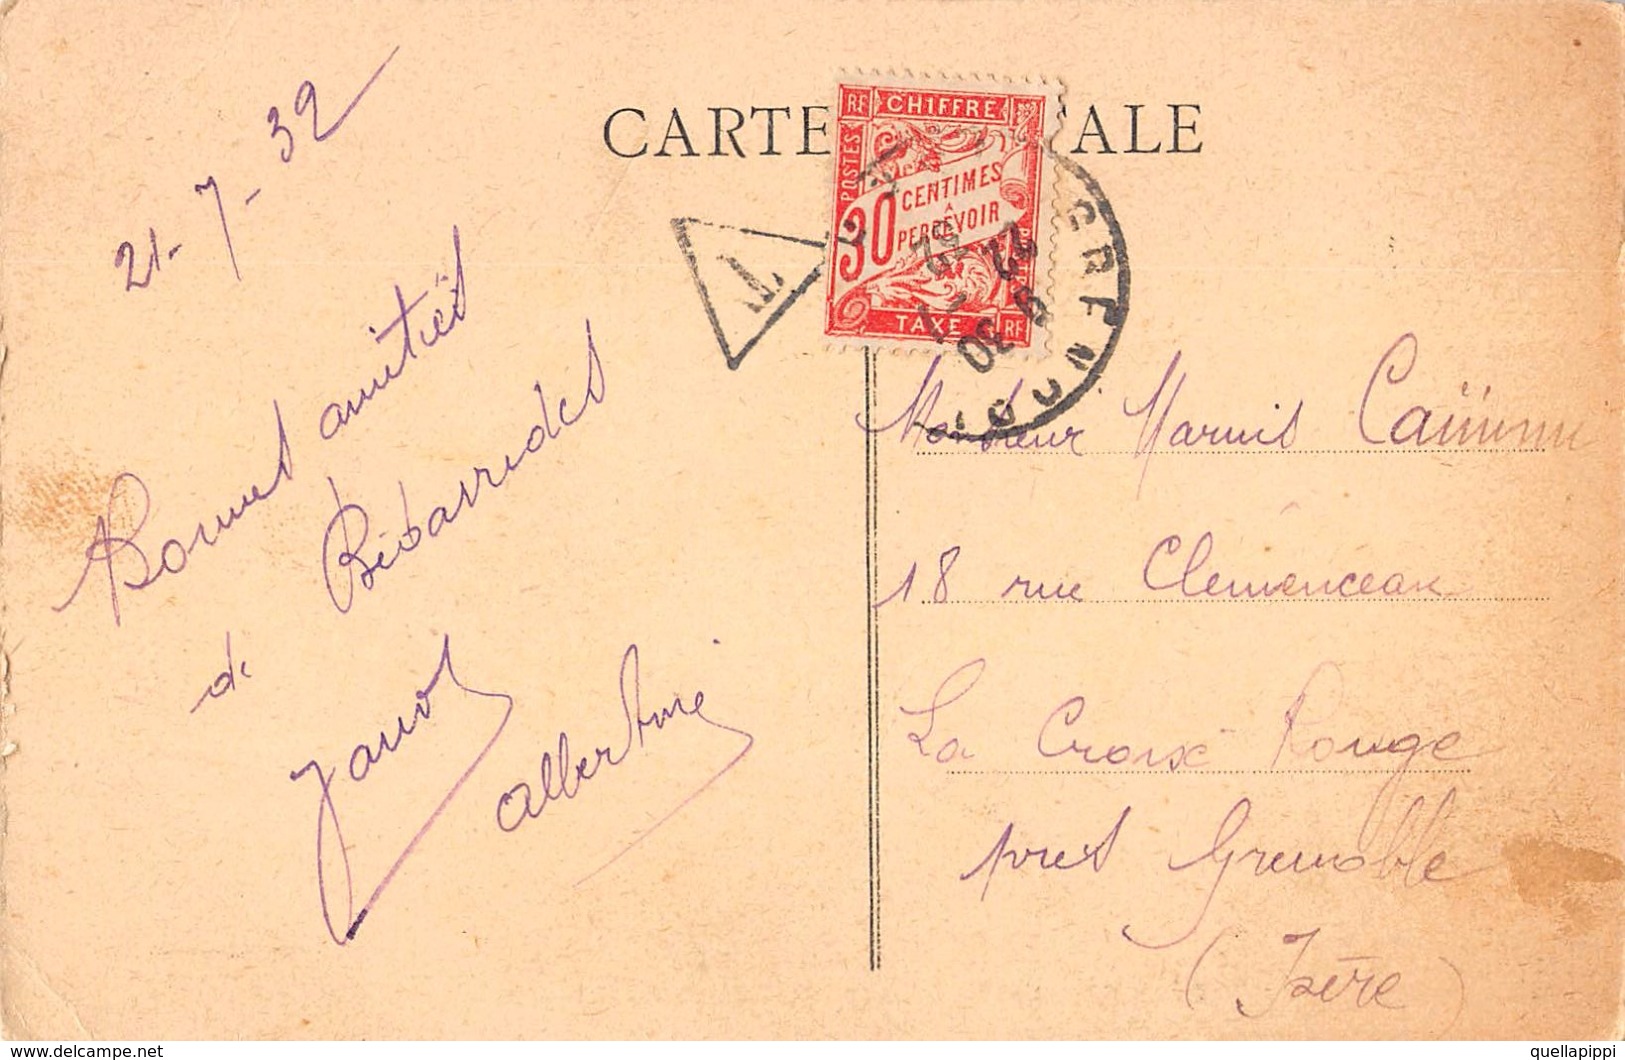 CARTE
ALE
RF CHIFFRE
POSTES
30 CENTIMES
À
PERCEVOIR
TAXE RF
T
GRENOBLE
9 30
22
-7
32
21-7-32
Bonnes amitiés
de Bédarrides
Albertine
Monsieur Marius
18 rue Clemenceau
La Croix Rouge
près Grenoble
(Isère)
delcampe.net
quellapippi